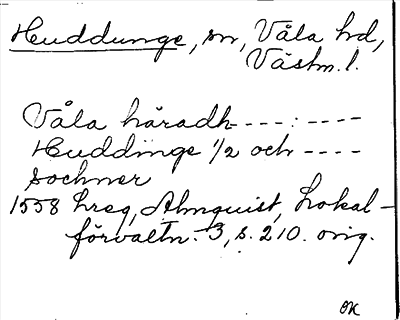 Huddunge, sn, Våla hd,
Västm. l.
Våla häradh - - - - : - - - -
Huddinge 1/2 och - - - -
sochner
1558 hreg, Almquist, Lokal-
förvaltn. 3, s. 210. orig.
OK